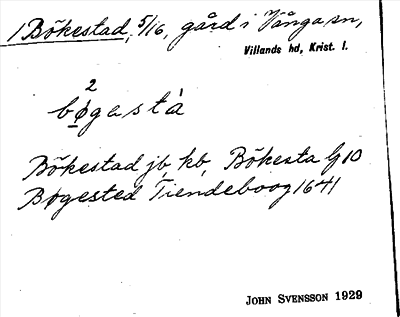 1 Bökestad, 5/16, gård i Vånga sn,
Villands hd, Krist. l.
2
bø̱gastà
Bökestad jb, kb, Bökesta G 10
Bøgested Tiendeboog 1641
JOHN SVENSSON 1929